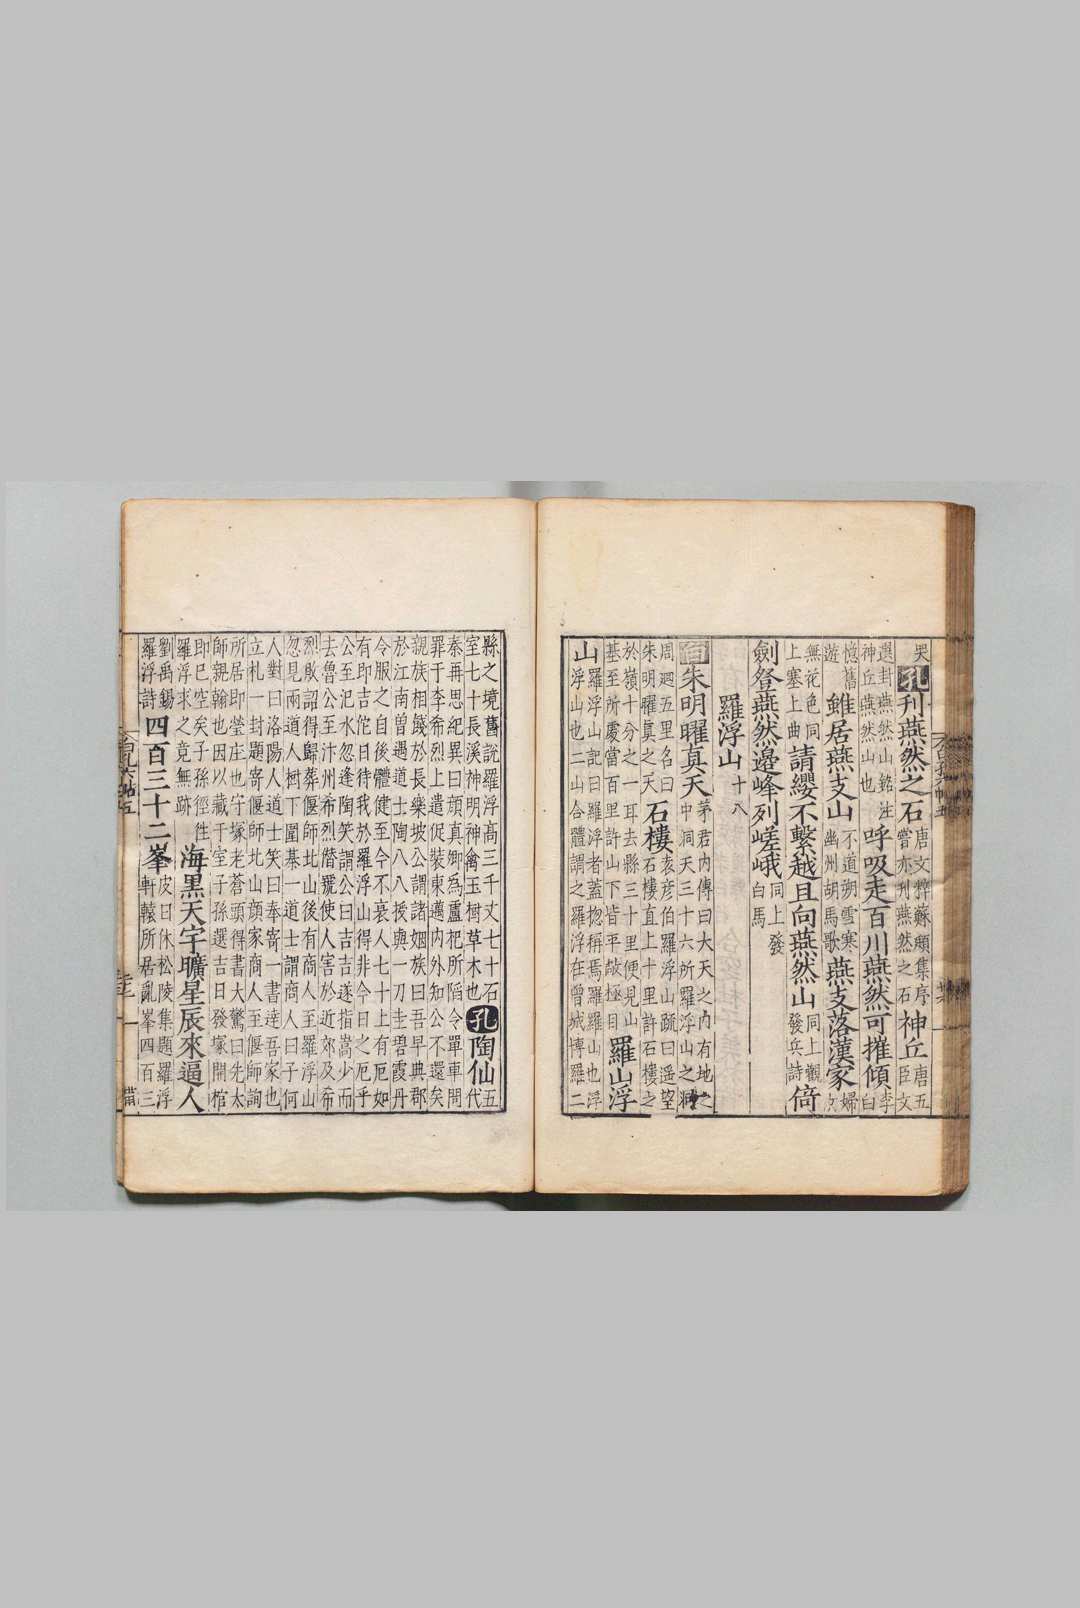 哭
孔刋燕然之石
唐文粹蘇頲集序
嘗亦刋燕然之石
神丘
唐五
臣文
選封燕然山銘注
神丘燕然山也
呼吸走百川燕然可摧傾
李
白
憶舊
遊
雖居燕支山
不道朔雪寒
幽州胡馬歌
燕支落漢家
婦
女
無花色同
上塞上曲
請纓不繫越且向燕然山
同上觀
發兵詩
倚
劍登燕然邊峰列嵯峨
同上發
白馬
羅浮山
十八
白朱明曜真天
茅君内傳曰大天之内有地之
中洞天三十六所羅浮山之洞
周廻五里名曰
朱明曜真之天
石樓
袁彦伯羅浮山疏曰遥望
石樓石樓直上十里許石樓之
於嶺十分之一耳去縣三十里便見山
基至所處當百里許山下皆平敞極目
羅山浮
山
羅浮山記曰羅浮者蓋揔稱焉羅羅山也浮
浮山也二山合體謂之羅浮在曾城博羅二
縣之境舊說羅浮高三千丈七十石
室七十長溪神明神禽玉樹草木也
孔陶仙
五
代
秦再思紀異曰顔真卿爲盧杞所陷令單車問
罪于李希烈上遣促裝東邁内外知公不還矣
親族相餞於長樂坡公謂諸姻族曰吾早典郡
於江南曾遇道士陶八八授與一刀圭碧霞丹
令服之自後體健至今不衰人七十上有厄如
有即吉佗日待我於羅浮山得非今日之厄乎
公至汜水忽逢陶笑謂公曰吉吉遂指嵩少而
去魯公至汴州希烈僭號使人害於近郊及希
烈敗詔得歸葬偃師北山後有商人至羅浮山
忽見兩道人樹下圍棊一道士謂商人曰子何
人對曰洛陽人道士笑曰奉寄一書達吾家也
立札一封題寄偃師北山顔家商人至偃師詢
所居即塋庄也守塚老蒼頭得書大驚曰先太
師親翰也因以藏于室子孫選吉日發塚開棺
即已空矣子孫徑往
羅浮求之竟無跡
海黑天宇曠星辰來逼人
劉禹錫
羅浮詩
四百三十二峯
皮日休松陵集題羅浮
軒轅所居亂峯四百三